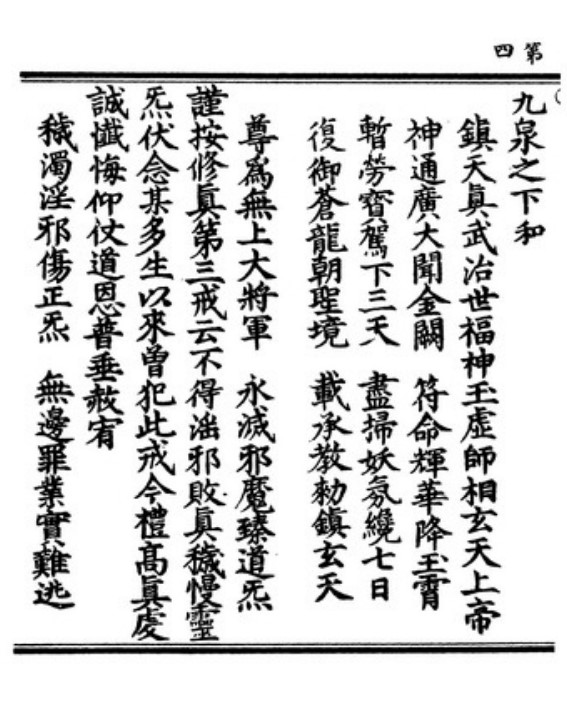 第四
九泉之下和
鎮天真武治世福神玉虛師相玄天上帝
神通廣大聞金闕　符命輝華降玉霄
暫勞寶駕下三天　盡掃妖氛繞七日
復御蒼龍朝聖境　載承教勑鎮玄天
尊為無上大將軍　永滅邪魔臻道炁
謹按修眞第三戒云不得淫邪敗眞穢慢靈
炁伏念某多生以來曾犯此戒今禮高眞虔
誠懺悔仰仗道恩普垂赦宥
穢濁淫邪傷正炁　無邊罪業實難逃